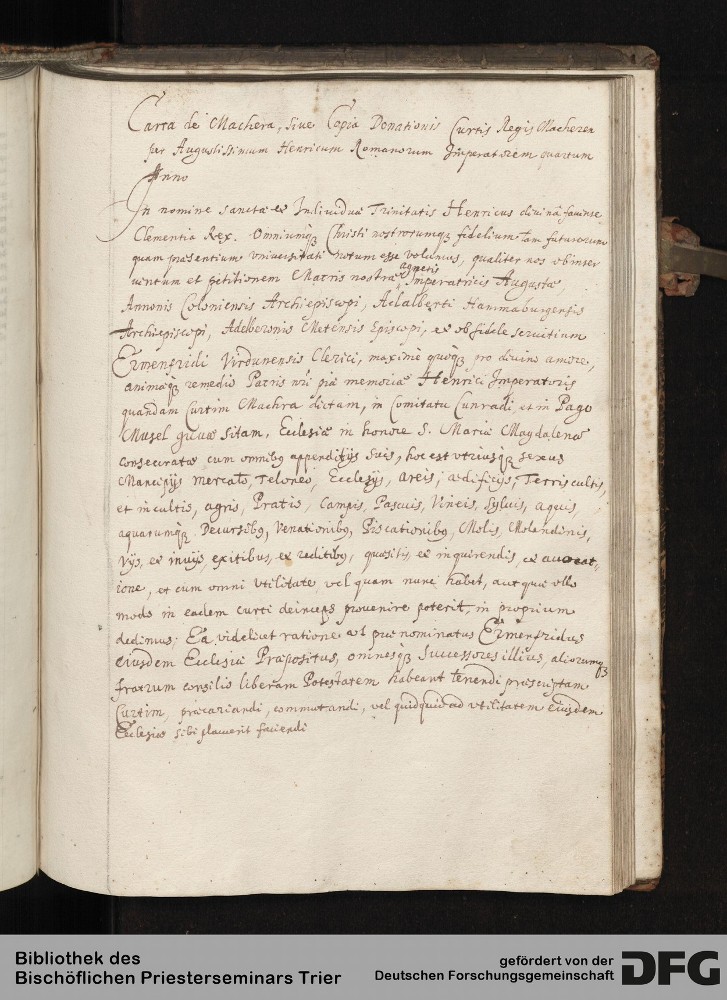 Carta de Machera, sive Copia Donationis Curtis Regis Macheren
per Augustissimum Henricum Romanorum Imperatorem quartum
Anno
In nomine sanctæ et Individuæ Trinitatis Henricus divinâ favente
Clementia Rex. Omniumqꝫ Christi nostrorumqꝫ fidelium tam futurorum
quam præsentium vniversitati notum esse volumus, qualiter nos ob inter
ventum et petitionem Matris nostræ Agnetis Imperatricis Augustæ
Annonis Coloniensis Archiepiscopi, Adalberti Hammaburgensis
Archiepiscopi, Adelberonis Metensis Episcopi, et ob fidele servitium
Ermenfridi Virdunensis Clerici, maximè quoqꝫ pro divino amore,
animæqꝫ remedio Patris nri piæ memoriæ Henrici Imperatoris
quandam Curtim Machra dictam, in Comitatu Cunradi, et in Pago
Musel guwæ sitam, Ecclesiæ in honore S. Mariæ Magdalenæ
consecratæ cum omnibꝫ appenditijs suis, hoc est vtriusqꝫ sexus
Mancipijs mercato, Teloneo, Ecclesijs, areis, ædificijs, Terris cultis,
et incultis, agris, Pratis, Campis, Pascuis, Vineis, Sylvis, aquis,
aquarumqꝫ Decursibꝫ, Venationibꝫ, Piscationibꝫ, Molis, Molendinis,
Vijs, et invijs, exitibus, et reditibꝫ, quæsitis, et inquirendis, et advocat,
ione, et cum omni vtilitate vel quam nunc habet, aut quæ vllo
modo in eadem curti deinceps provenire poterit, in proprium
dedimus; Ea videlicet ratione vt præ nominatus Ermenfridus
eiusdem Ecclesiæ Præpositus, omnesqꝫ Successores illius, aliorumqꝫ
fratrum consilio liberam Potestatem habeant tenendi præscriptam
Curtim, præcariandi, commutandi, vel quidquid ad vtilitatem eiusdem
Ecclesiæ sibi placuerit faciendi
Bibliothek des
Bischöflichen Priesterseminars Trier
gefördert von der
Deutschen Forschungsgemeinschaft
DFG